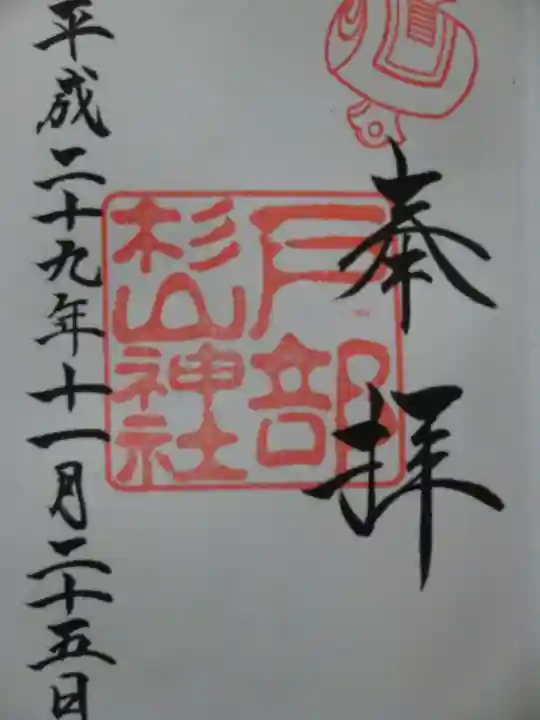 奉拝
戸部
杉山
神社
平成二十九年十一月二十五日